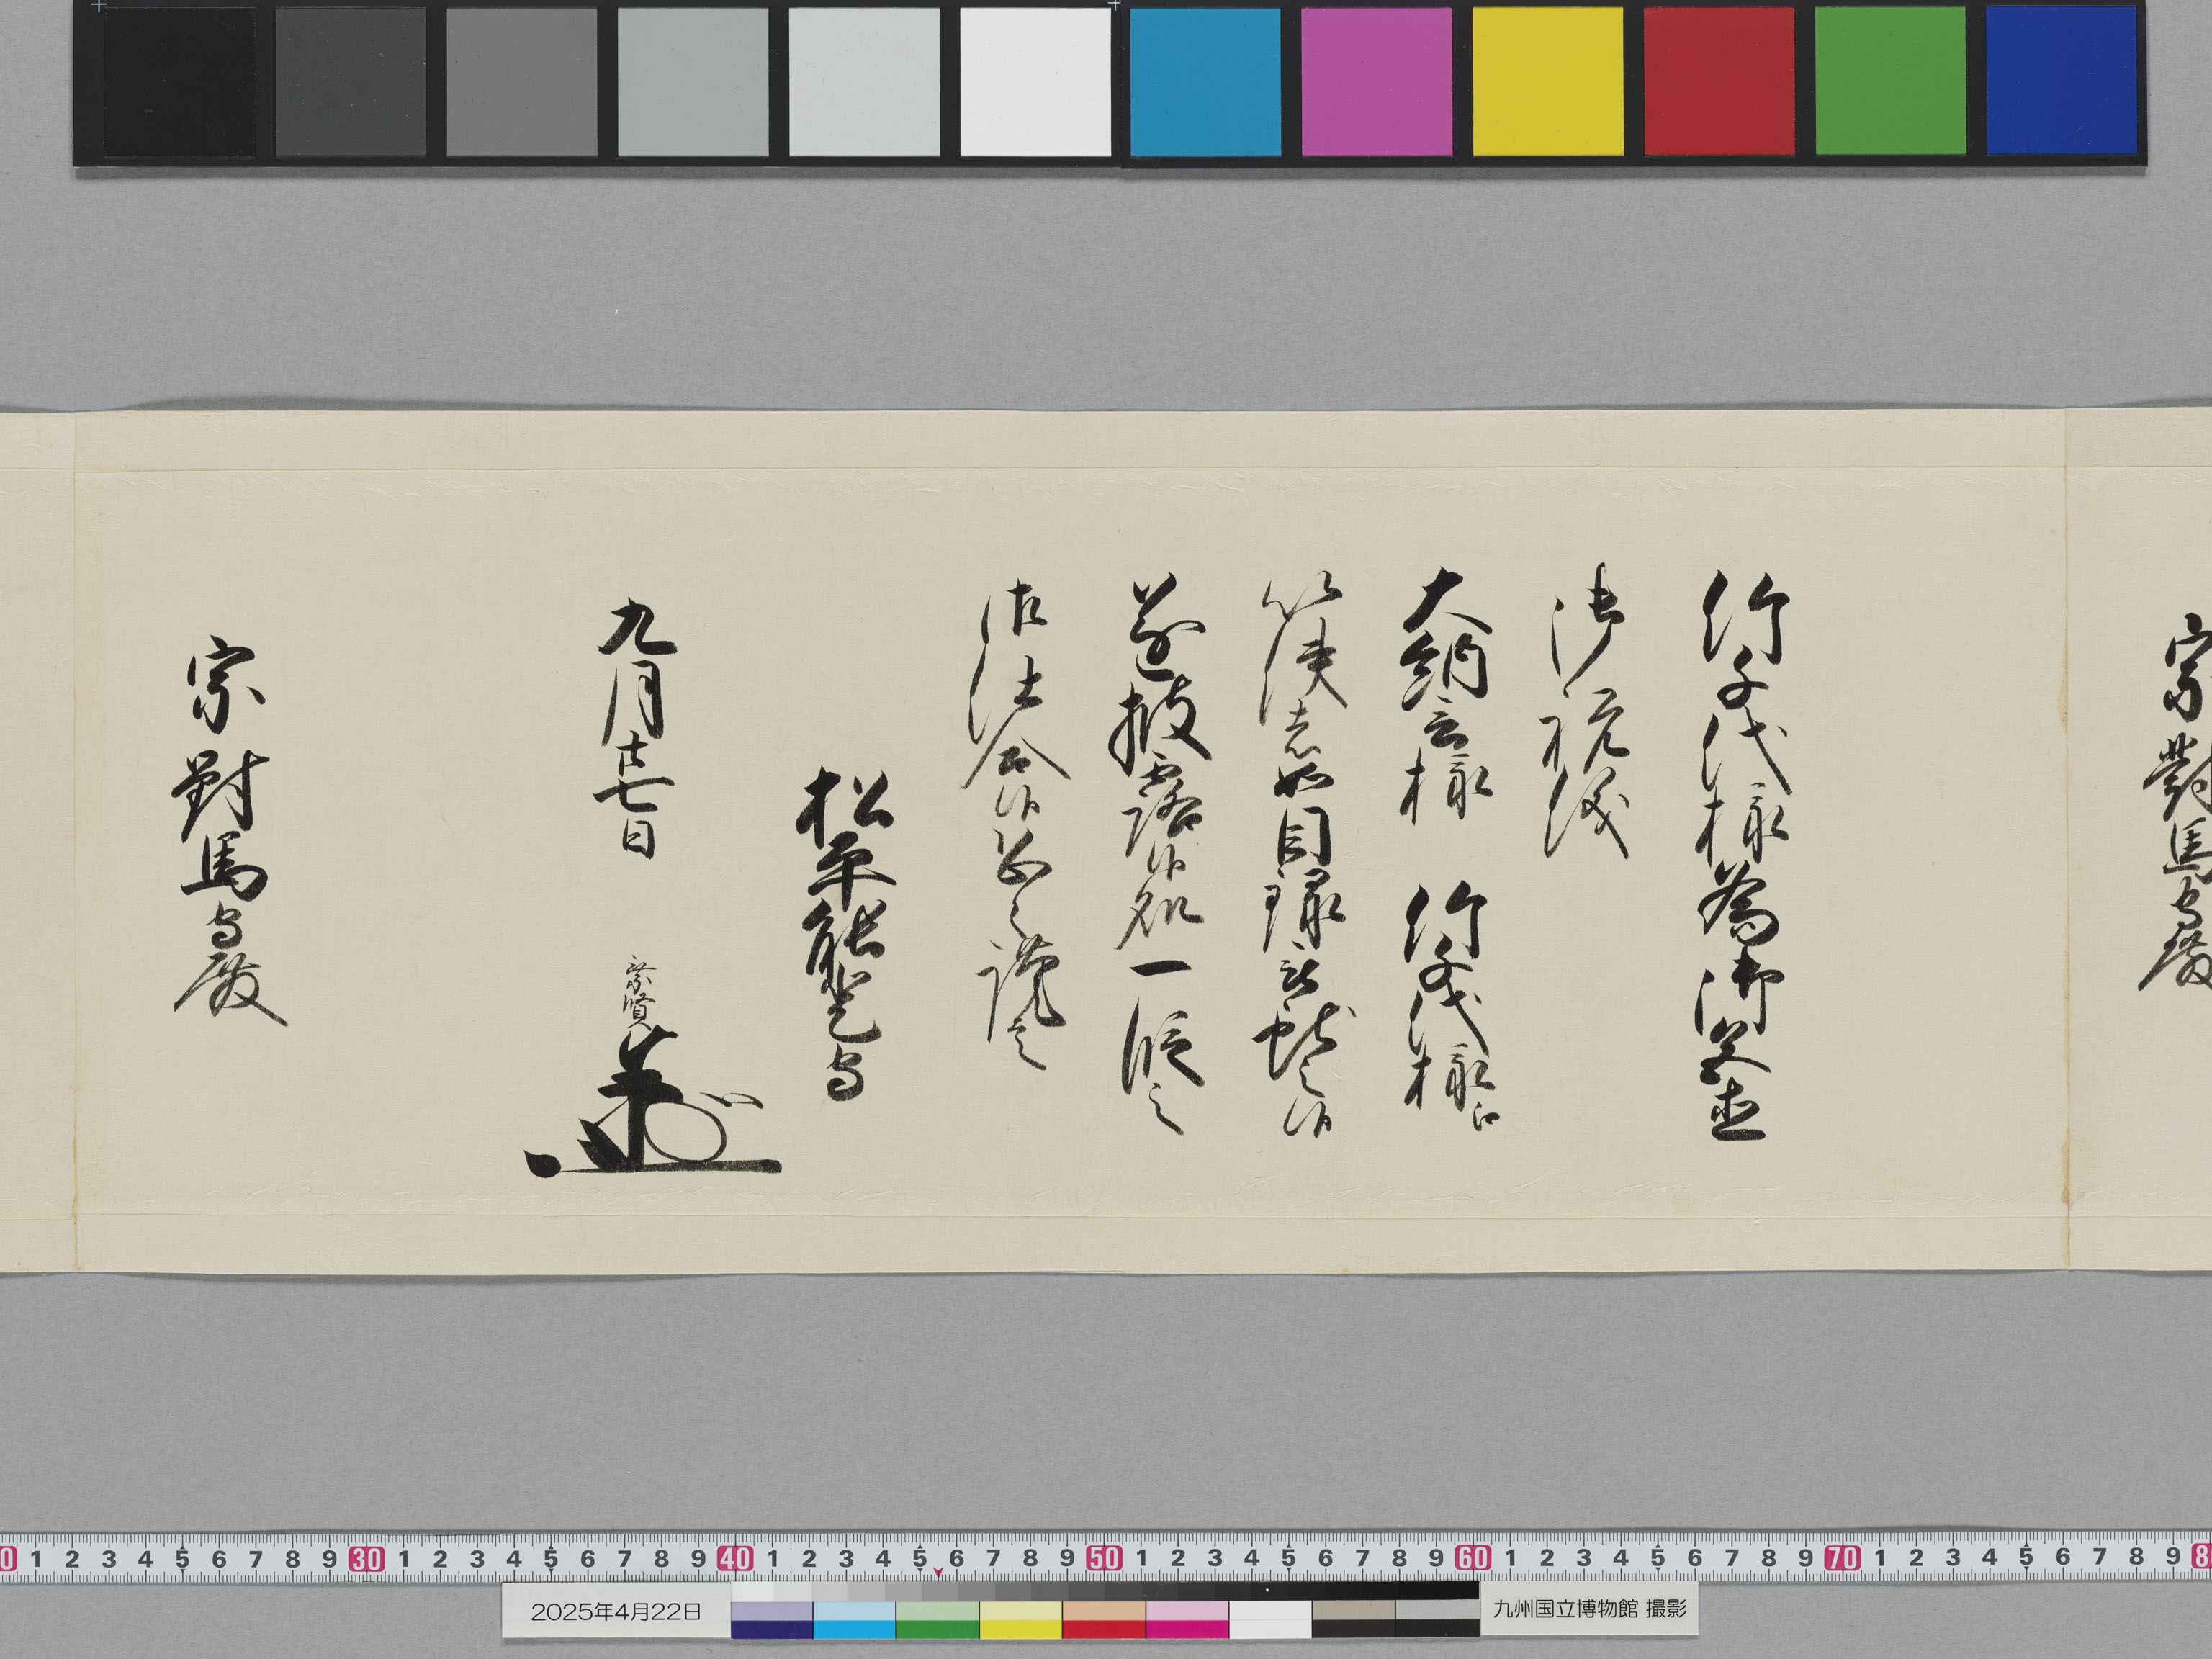 宗對馬守殿
竹千代様為御髪置
御祝儀
大納言様　竹千代様江
以使者如目録被献之候
遂披露候処一段之
御仕合候恐々謹言
松平能登守
九月廿七日　乗賢
宗對馬守殿
0 1 2 3 4 5 6 7 8 9 30 1 2 3 4 5 6 7 8 9 40 1 2 3 4 5 6 7 8 9 50 1 2 3 4 5 6 7 8 9 60 1 2 3 4 5 6 7 8 9 70 1 2 3 4 5 6 7 8 9 8
2025年4月22日
九州国立博物館 撮影